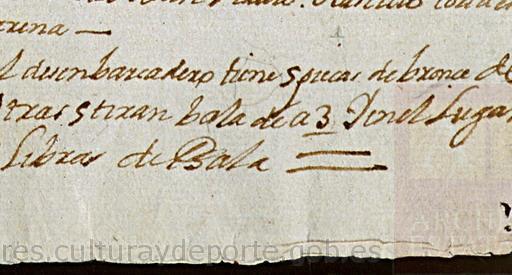 trena —
l desenbarcadero tiene 5 pieças de bronce de
tras 5 tiran bala de a 3 Y en el Lugar
Libras de Bala
res.culturaydeporte.gob.es
ARCH